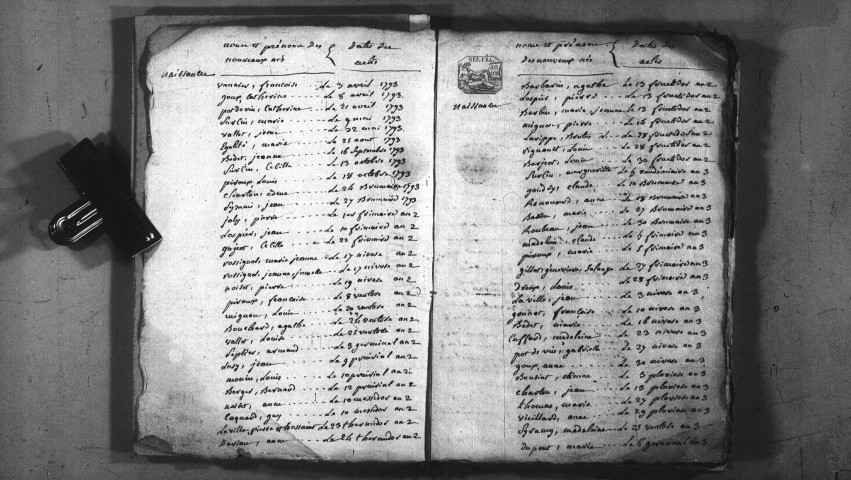 noms et prénoms des { dates des
nouveaux nés actes
naissance
vanier, francoise le 7 avril 1793
goux Catherine le 8 avril 1793
potdevin, Catherine le 21 avril 1793
surlin, marie le 9 mai 1793
vallot, jean le 22 mai 1793
Egalité, marie le 25 aout 1793
Bidet, jeanne le 16 septembre 1793
surlin, Cécille le 13 octobre 1793
piroux Louis le 18 octobre 1793
charton, edme le 26 Brumaire 1793
jean le 27 Brumaire 1793
joly, pierre le 1er frimaire an 2
Laspier, jean le 10 frimaire an 2
Cecille le 22 frimaire an 2
rossignol, marie jeanne le 17 nivose an 2
rossignol, jeanne le 17 nivose an 2
noirot, pierre le 19 nivose an 2
piroux, francoise le 8 ventose an 2
mignon, Louis le 20 ventose an 2
Bouchard, agathe le 22 ventose an 2
vallot, Louise le 25 ventose an 2
armand le 3 germinal an 2
jean le 9 prairial an 2
Louis le 10 prairial an 2
Berger, Bernard le 12 prairial an 2
noirot, anne le 10 messidor an 2
guy le 10 messidor an 2
Laville, pierre le 23 thermidor an 2
anne le 24 thermidor an 2
noms et prénoms { dates des
des nouveaux nés actes
REP. FRA.
naissance
Barbarin, agathe le 13 fructidor an 2
Laspier, pierre le 13 fructidor an 2
Barbin, marie jeanne le 13 fructidor an 2
mignon, pierre le 16 fructidor an 2
Larippe, Brutus le 28 fructidor an 2
Louis le 28 fructidor an 2
Louis le 30 fructidor an 2
Surlin, marguerite le 9 vendemiaire an 3
claude le 10 Brumaire an 3
Renouard, anne le 18 Brumaire an 3
marie le 27 Brumaire an 3
Rouleau, jean le 30 Brumaire an 3
madelin, claude le 5 frimaire an 3
piroux, marie le 5 frimaire an 3
gillot, genevieve, solange le 27 frimaire an 3
Louis le 28 frimaire an 3
Laville, jean le 3 nivose an 3
francoise le 10 nivose an 3
Bidet, marie le 16 nivose an 3
Cuffard, madeleine le 23 nivose an 3
pot de vin, gabrielle le 27 nivose an 3
goux, anne le 30 nivose an 3
etienne le 3 pluviose an 3
charton, jean le 13 pluviose an 3
thomas, marie le 27 pluviose an 3
vieillard, anne le 29 pluviose an 3
madeleine le 23 ventose an 3
dupont, marie le 6 germinal an 3